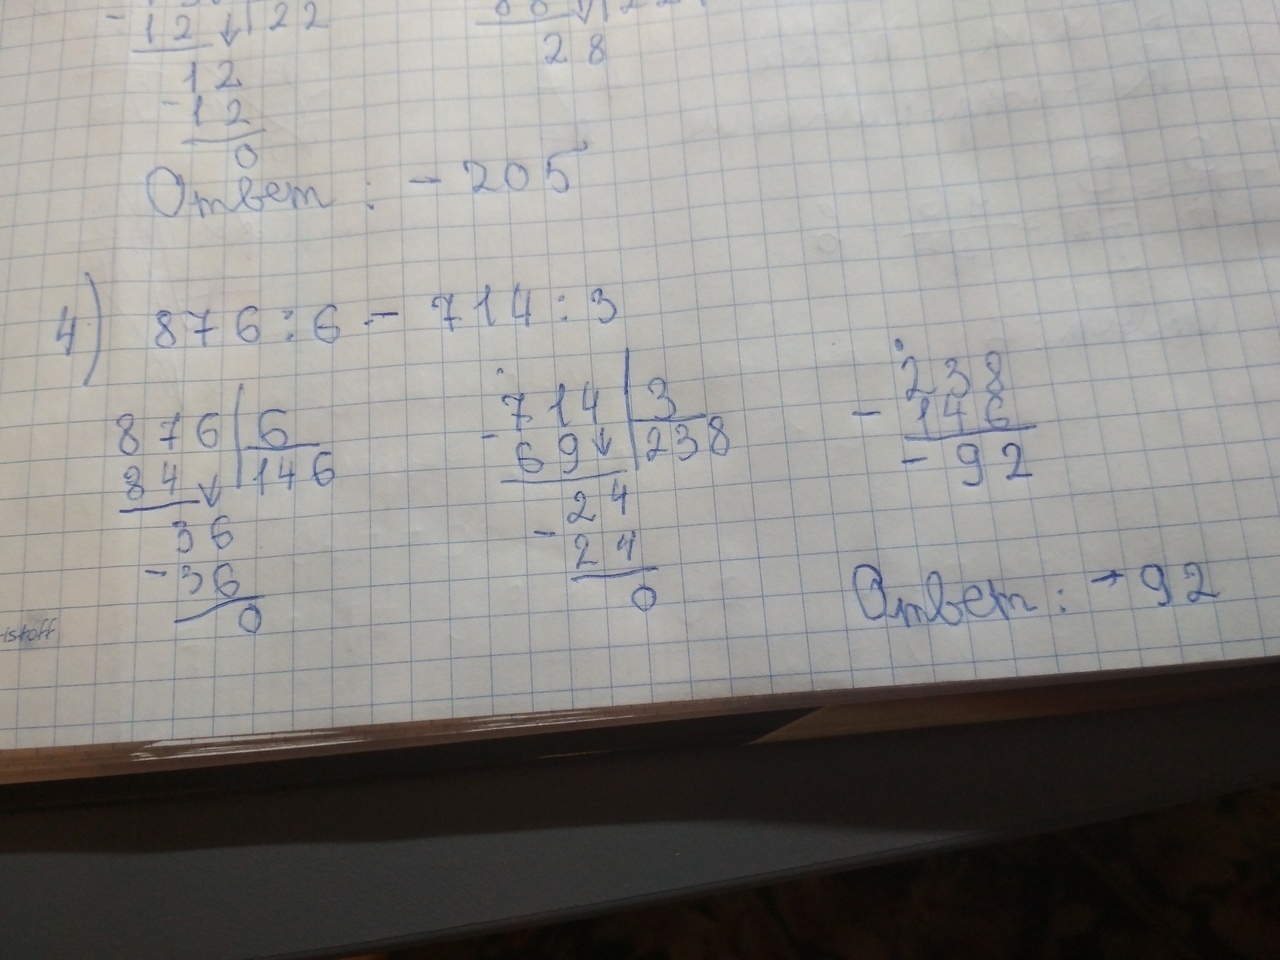 - 12 22
28
12
- 12
0
Ответ: - 205
4) 876 : 6 - 714 : 3
876 6
84 146
36
- 36
0
- 714 3
69 238
24
- 24
0
- 238
146
- 92
Ответ: - 92
istoff